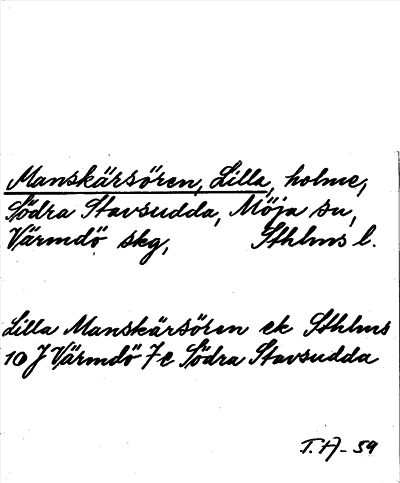 Manskärsören, Lilla, holme,
Södra Stavsudda, Möja sn,
Värmdö skg, Sthlms l.
Lilla Manskärsören ek Sthlms
10 J Värmdö 7 e Södra Stavsudda
T. A- 59